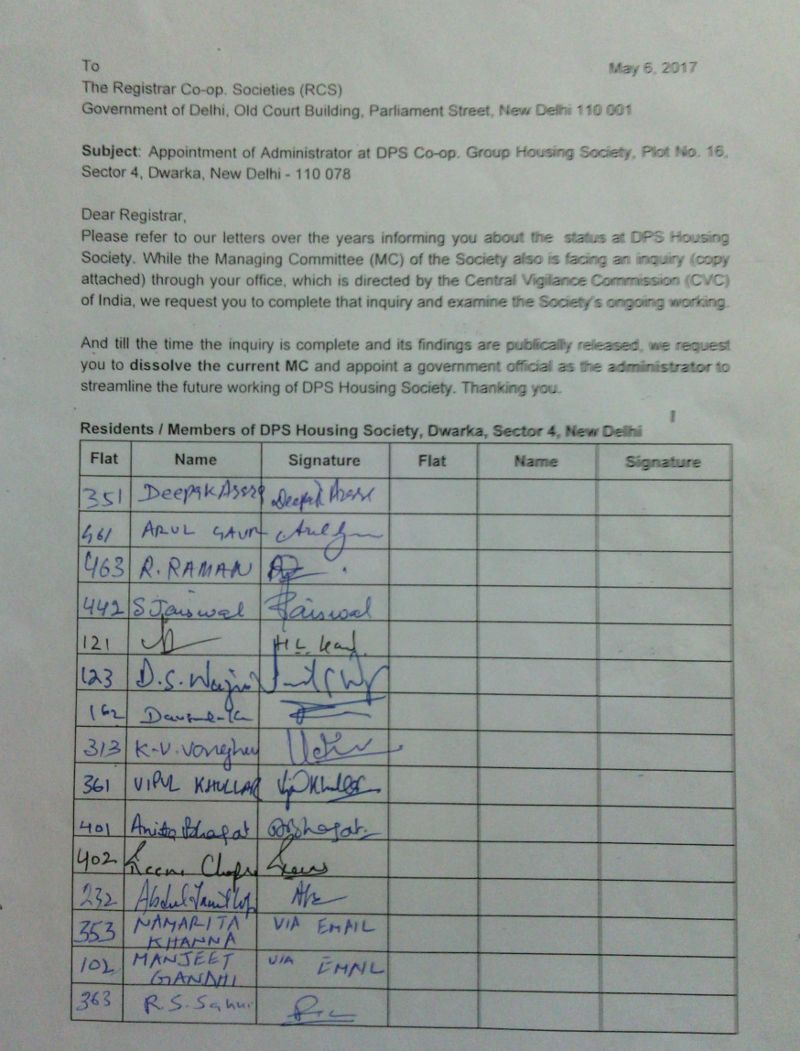 To May 6, 2017
The Registrar Co-op. Societies (RCS)
Government of Delhi, Old Court Building, Parliament Street, New Delhi 110 001
Subject: Appointment of Administrator at DPS Co-op. Group Housing Society, Plot No. 16,
Sector 4, Dwarka, New Delhi - 110 078
Dear Registrar,
Please refer to our letters over the years informing you about the status at DPS Housing
Society. While the Managing Committee (MC) of the Society also is facing an inquiry (copy
attached) through your office, which is directed by the Central Vigilance Commission (CVC)
of India, we request you to complete that inquiry and examine the Society's ongoing working.
And till the time the inquiry is complete and its findings are publically released, we request
you to dissolve the current MC and appoint a government official as the administrator to
streamline the future working of DPS Housing Society. Thanking you.
Residents / Members of DPS Housing Society, Dwarka, Sector 4, New Delhi
Flat Name Signature Flat Name Signature
351 Deepak
461 ARUL GAUR
463 R. RAMAN
442 S Jaiswal Jaiswal
121 H L
123 D.S.
162
313 K-V.
361 VIPUL KHULLAR
401 Anita Bhagat Bhagat
402
232 Abdul
353 NAMARITA KHANNA VIA EMAIL
102 MANJEET GANDHI VIA EMAIL
363 R.S.